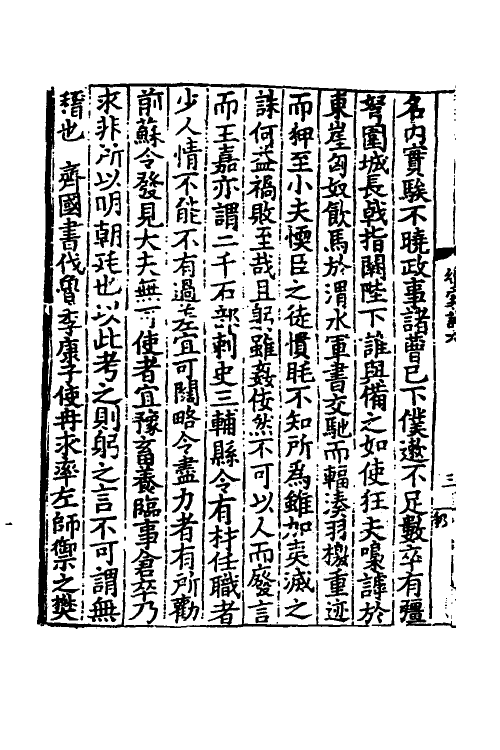 名内實騃不曉政事諸曹已下僕遬不足數卒有彊
弩圍城長㦸指闕陛下誰與備之如使狂夫嘄謼於
東崖匈奴飲馬於渭水軍書交馳而輻湊羽檄重迹
而狎至小夫愞臣之徒憒眊不知所為雖加夷滅之
誅何益禍敗至哉且躬雖姦佞然不可以人而廢言
而王嘉亦謂二千石部刺史三輔縣令有材任職者
少人情不能不有過差宜可闊略令盡力者有所勸
前蘇令發見大夫無可使者宜豫畜養臨事倉卒乃
求非所以明朝廷也以此考之則躬之言不可謂無
稽也 齊國書伐魯季康子使冉求率左師禦之樊
三